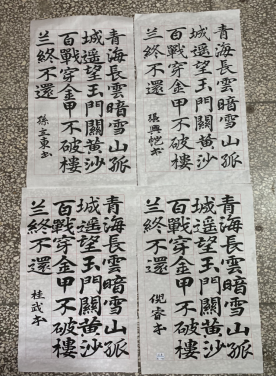 青海長雲暗雪山孤
城遥望玉門關黄沙
百戰穿金甲不破樓
兰終不還
張興书
青海長雲暗雪山孤
城遥望玉門關黄沙
百戰穿金甲不破樓
兰終不還
孫东书
青海長雲暗雪山孤
城遥望玉門關黄沙
百戰穿金甲不破樓
兰終不還
倪睿书
青海長雲暗雪山孤
城遥望玉門關黄沙
百戰穿金甲不破樓
兰終不還
桂武书